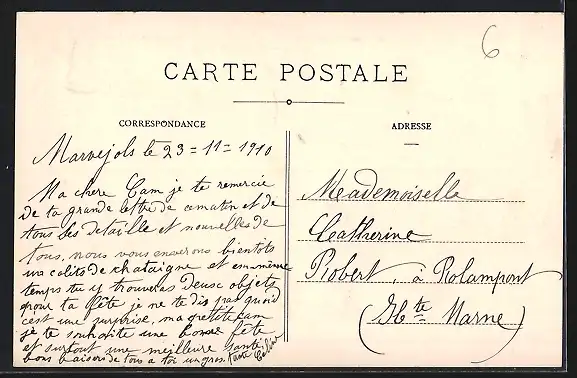 6
CARTE POSTALE
CORRESPONDANCE
ADRESSE
Marvejols le 23=11=1910
Ma chere Cam je te remercie
de ta grande lettre de cematin et de
tous ses detaille et nouvelles de
tous, nous vous enverons bientots
un colits de chataigne et en meme
temps tu y trouveras Deux objets
pour ta fête je ne te dis pas quoi
c'est une surprise, ma petite Cam
je te souhaite une bonne fête
et surtout une meilleure santé
bons baisers de tous a toi un gros.
Mademoiselle
Catherine
Robert, à Rolampont
(Hte Marne)